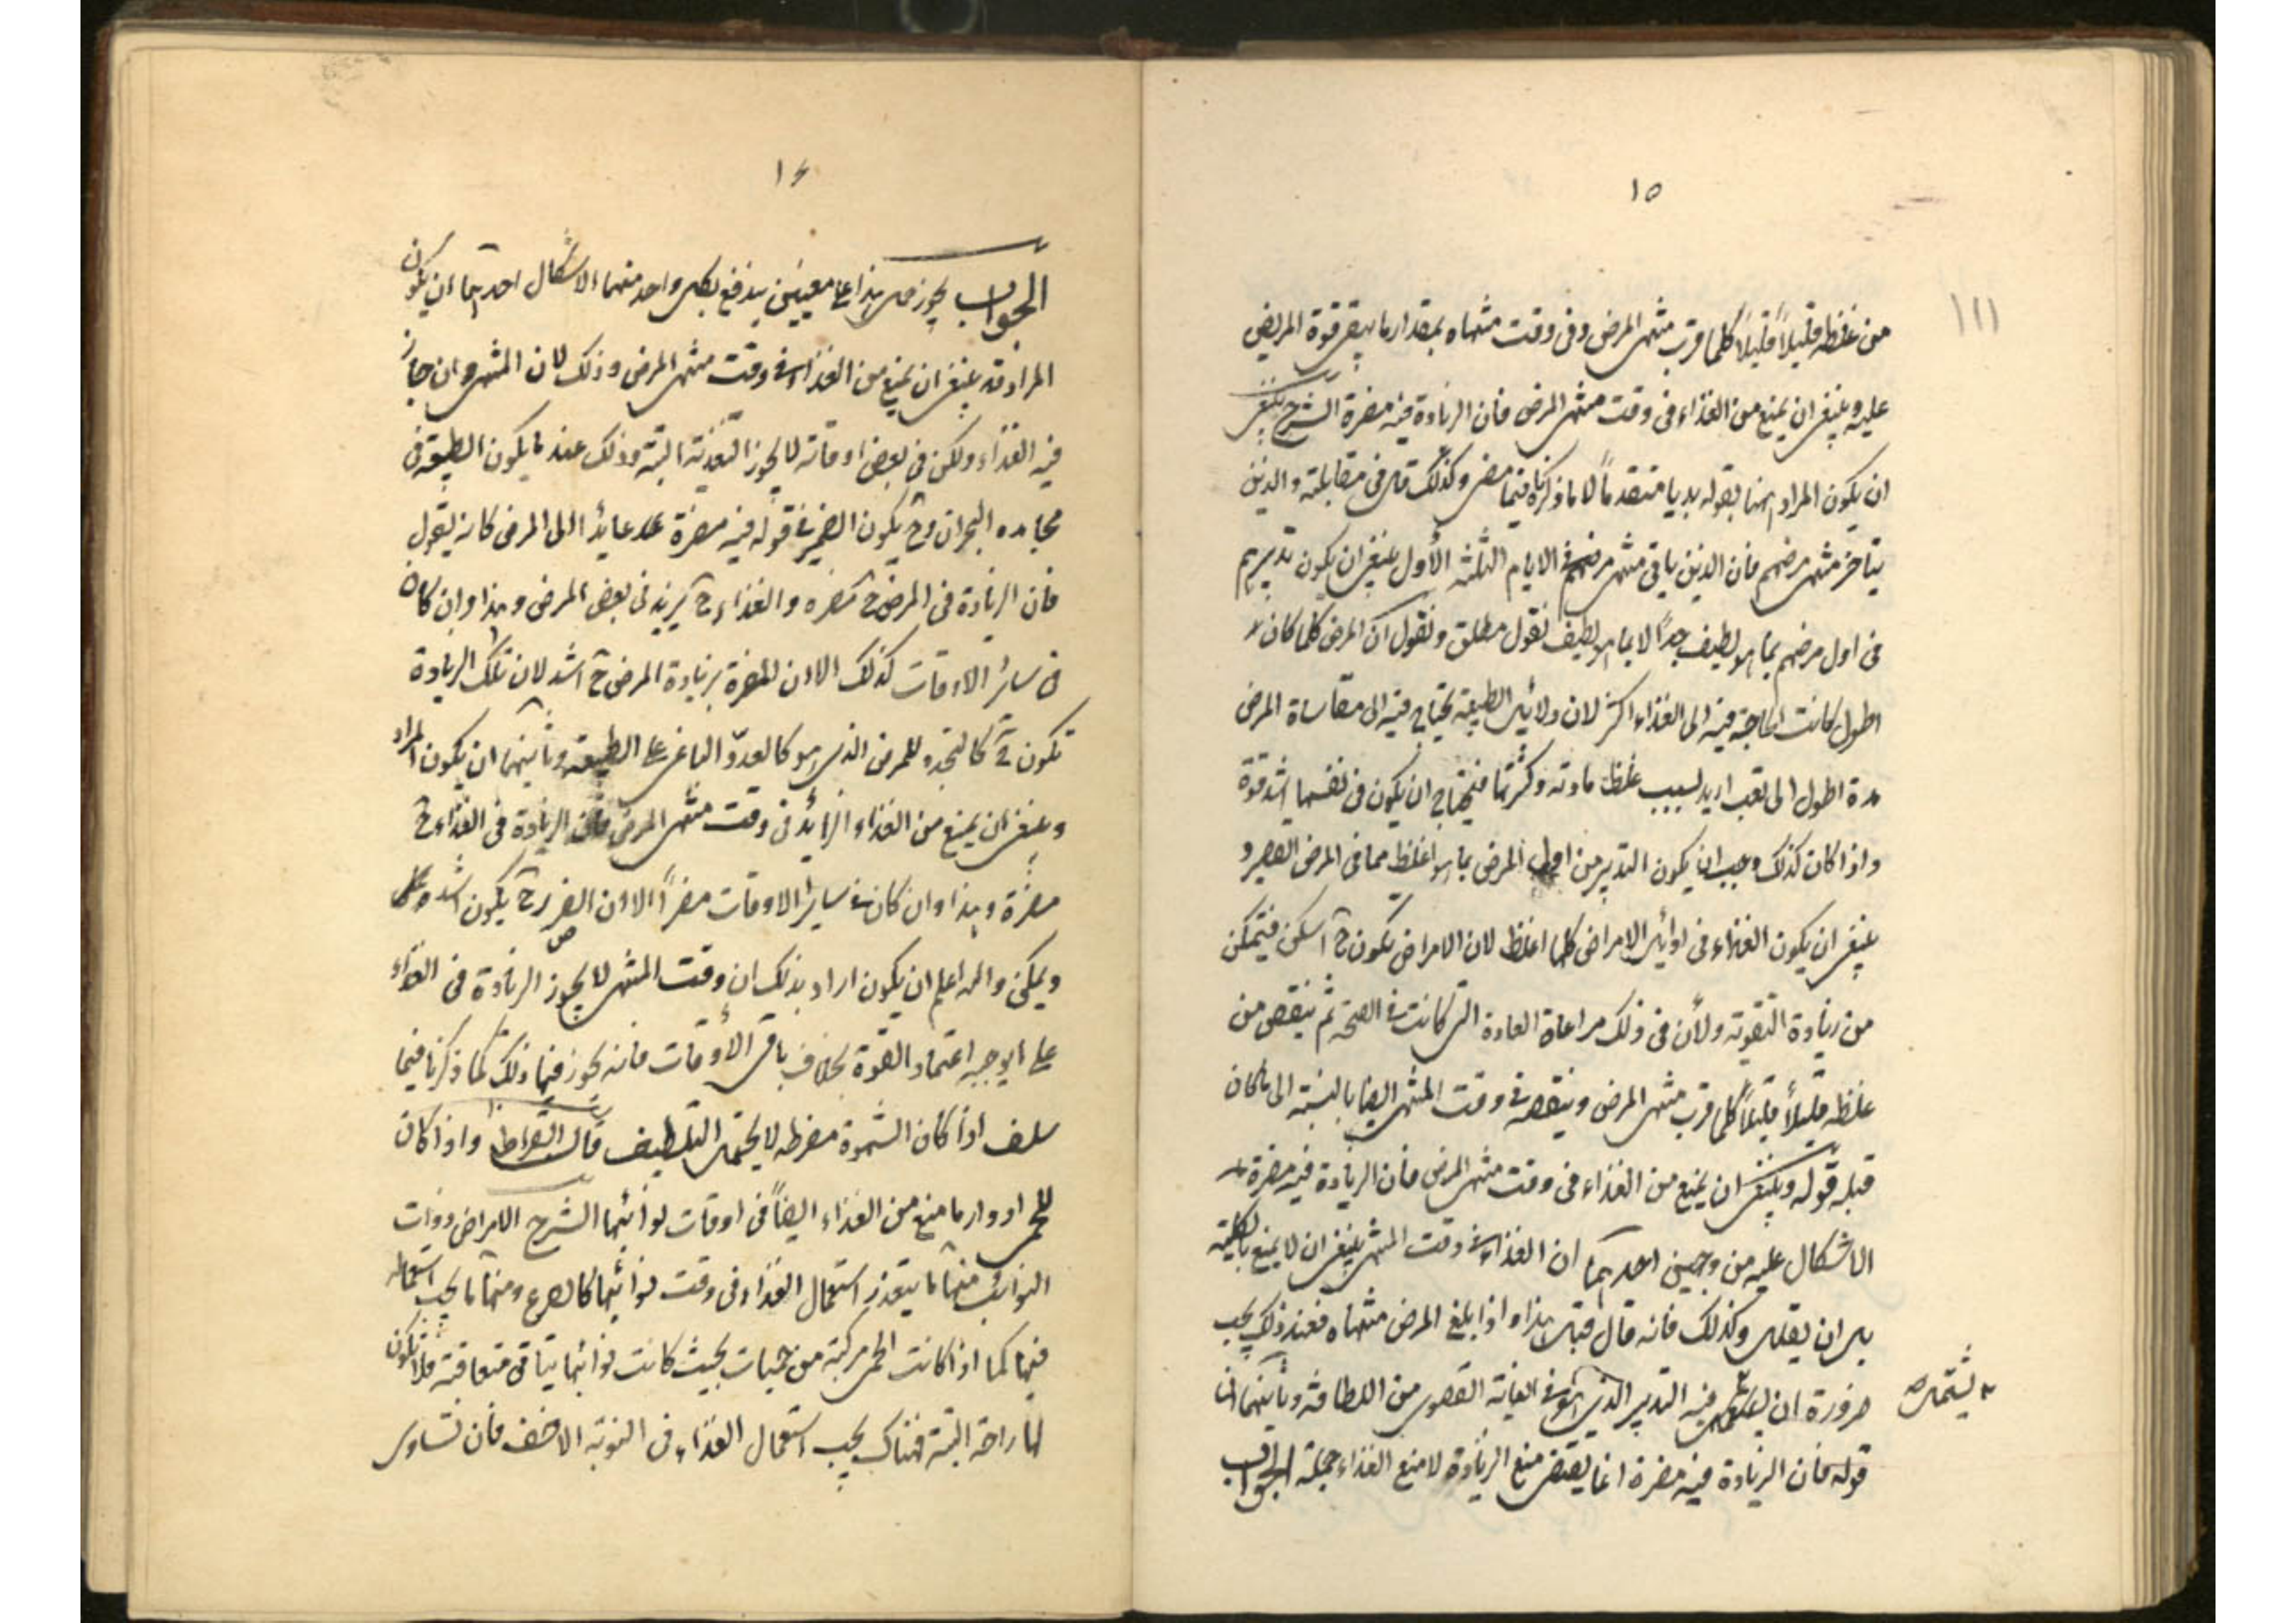 ١٥
من غلظه قليلاً قليلاً كلما قرب منتهى المرض وفى وقت منتهاه بمقدار ما يبقى قوة المريض
عليه وينبغى ان يمنع من الغذاء فى وقت منتهى المرض فان الزيادة فيه مضرة الشرح ينبغى
ان يكون المراد ههنا بقوله بديا متقدماً لا ما ذكرنا فيما مضى وكذلك قال فى مقابلته والذين
يتأخر منتهى مرضهم فان الذين ياتى منتهى مرضهم فى الايام الثلثة الأول ينبغى ان يكون تدبيرهم
فى اول مرضهم بما هو لطيف جداً لا بما هو لطيف بقول مطلق ونقول ان المرض كلما كان
اطول كانت الحاجة فيه الى الغذاء اكثر لان الطبيعة تحتاج فيه الى مقاساة المرض
مدة اطول الى تعب ازيد بسبب غلظ مادته وكثرتها فتحتاج ان يكون فى نفسها اشد قوة
واذا كان كذلك وجب ان يكون التدبير من اول المرض بما هو اغلظ مما فى المرض القصير و
ينبغى ان يكون الغذاء فى اوائل الامراض كلها اغلظ لان الامراض يكون ح اسكن فيتمكن
من زيادة التقوية ولأن فى ذلك مراعاة العادة التى كانت فى الصحة ثم ينقص من
غلظه قليلاً قليلاً كلما قرب منتهى المرض وينقص فى وقت المنتهى ايضا بالنسبة الى ما كان
قبله قوله وينبغى ان يمنع من الغذاء فى وقت منتهى المرض فان الزيادة فيه مضرة
الاشكال عليه من وجهين احدهما ان الغذاء فى وقت المنتهى ينبغى ان لا يمنع بالكلية
بل ان يقلل وكذلك فانه قال قبل هذا واذا بلغ المرض منتهاه فعند ذلك يجب
ضرورة ان يستعمل فيه التدبير الذى هو فى الغاية القصوى من اللطافة وثانيهما ان
يستعمل
قوله فان الزيادة فيه مضرة انما يقتضى منع الزيادة لا منع الغذاء جملة الجواب
١٦
الجواب يجوز حمل هذا على معنيين يندفع بكل واحد منهما الاشكال احدهما ان يكون
المراد قد ينبغى ان يمنع من الغذاء فى وقت منتهى المرض وذلك لان المنتهى وان جاز
فيه الغذاء ولكن فى بعض اوقاته لا يجوز التغذية البتة وذلك عند ما يكون الطبيعة فى
مجاهدة البحران وح يكون الضمير فى قوله فيه مضرة عائداً الى المرض كانه يقول
فان الزيادة فى المرض ح مضره والغذاء ح يزيد فى بعض المرض وهذا وان كان
فى سائر الاوقات كذلك الا ان المضرة بزيادة المرض ح اشد لان تلك الزيادة
تكون ح كالنجدة للمرض الذى هو كالعدو الباغى على الطبيعة وثانيهما ان يكون المراد
وينبغى ان يمنع من الغذاء الزائد فى وقت منتهى المرض فان الزيادة فى الغذاء ح
مضرة وهذا وان كان فى سائر الاوقات مضراً الا ان الضرر ح يكون اشد
ويمكن والله اعلم ان يكون اراد بذلك ان وقت المنتهى لا يجوز الزيادة فى الغذاء
على ما يوجبه اعتماد القوة بخلاف باقى الأوقات فانه يجوز فيها ذلك كما ذكرنا فيما
سلف اذا كان الشهوة مفرطه لا يحتمل التلطيف قال ابقراط واذا كان
للحمى ادوار ما منع من الغذاء ايضاً فى اوقات نوائبها الشرح الامراض ذوات
النوائب منها ما يتعذر استعمال الغذاء فى وقت نوائبها كالصرع ومنها ما يجب استعماله
فيها كما اذا كانت الحمى مركبة من حميات بحيث كانت نوائبها ياتى متعاقبة فلا تكون
لها راحة البتة فهناك يجب استعمال الغذاء فى النوبة الاخف فان تساوى